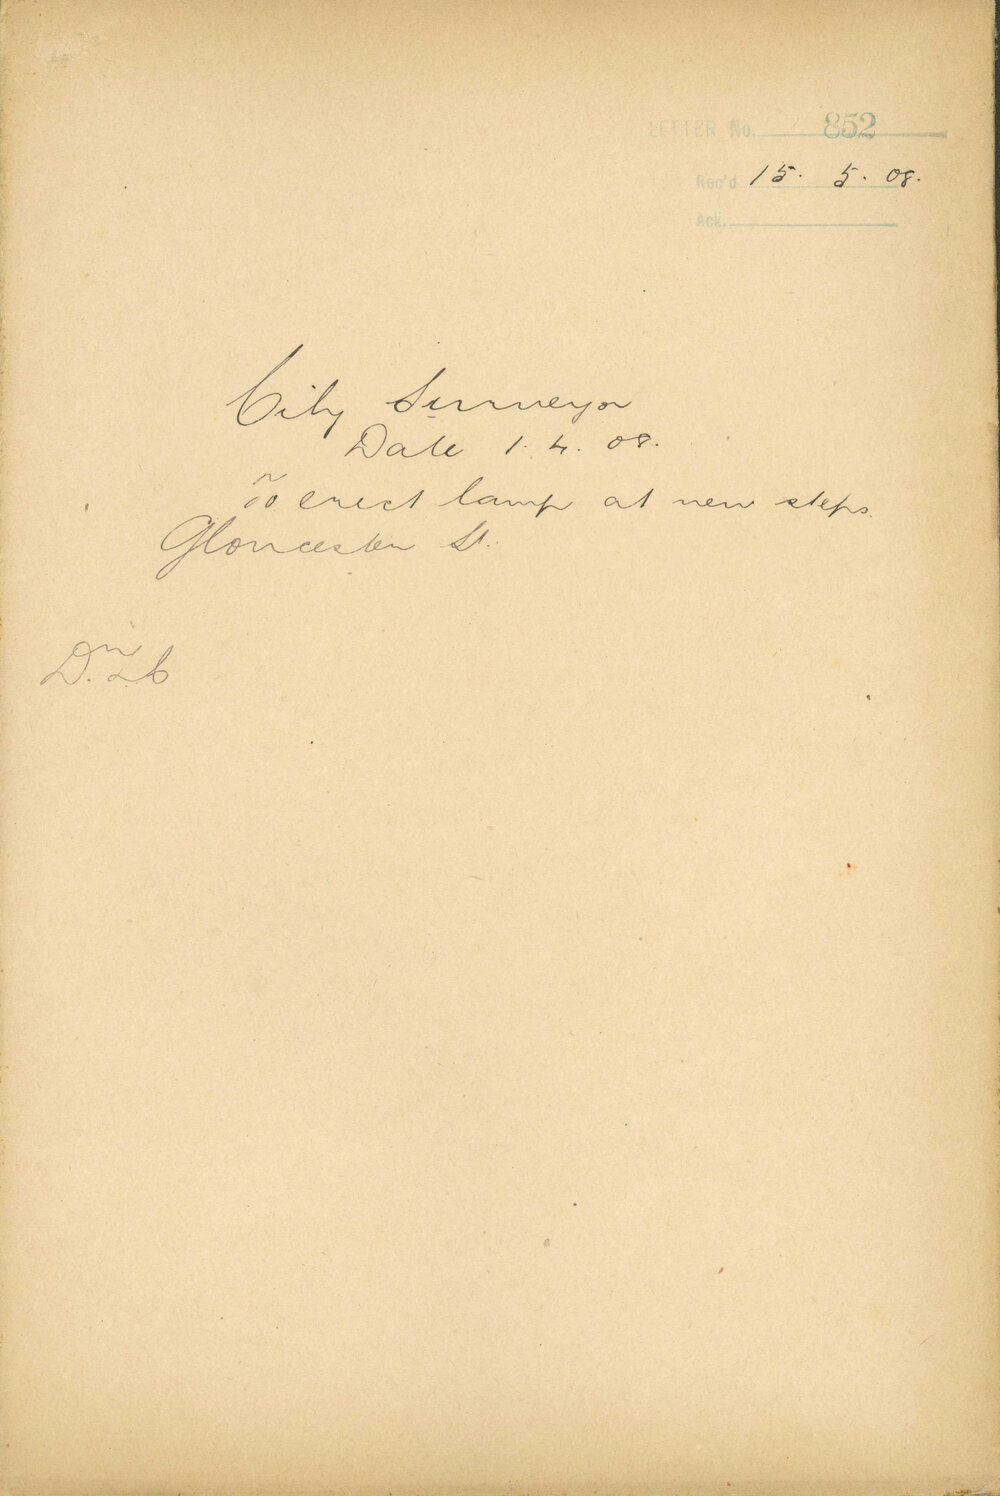 LETTER No. 852
Rec'd 15. 5. 08.
Ack.
City Surveyor
Date 1. 4. 08.
To erect lamp at new steps.
Gloucester St.